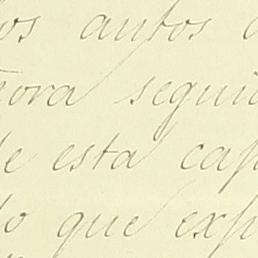 los autos
ñora segui
de esta cap
do que exp